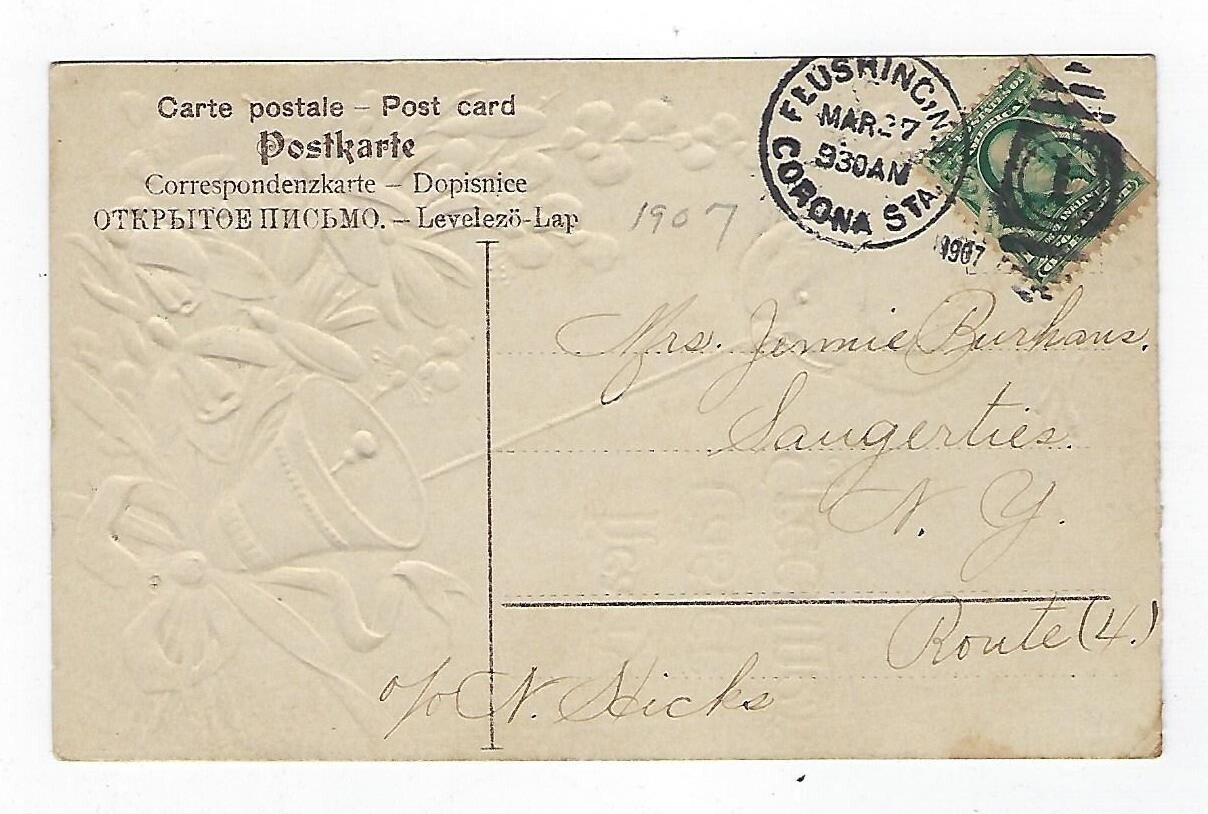 Carte postale – Post card
Postkarte
Correspondenzkarte – Dopisnice
ОТКРЫТОЕ ПИСЬМО. – Levelezö-Lap
1907
FLUSHING, N.
MAR 27
930AM
1907
CORONA STA.
1
Mrs. Jennie Burhans.
Saugerties.
N. Y.
Route (4.)
c/o N. Hicks